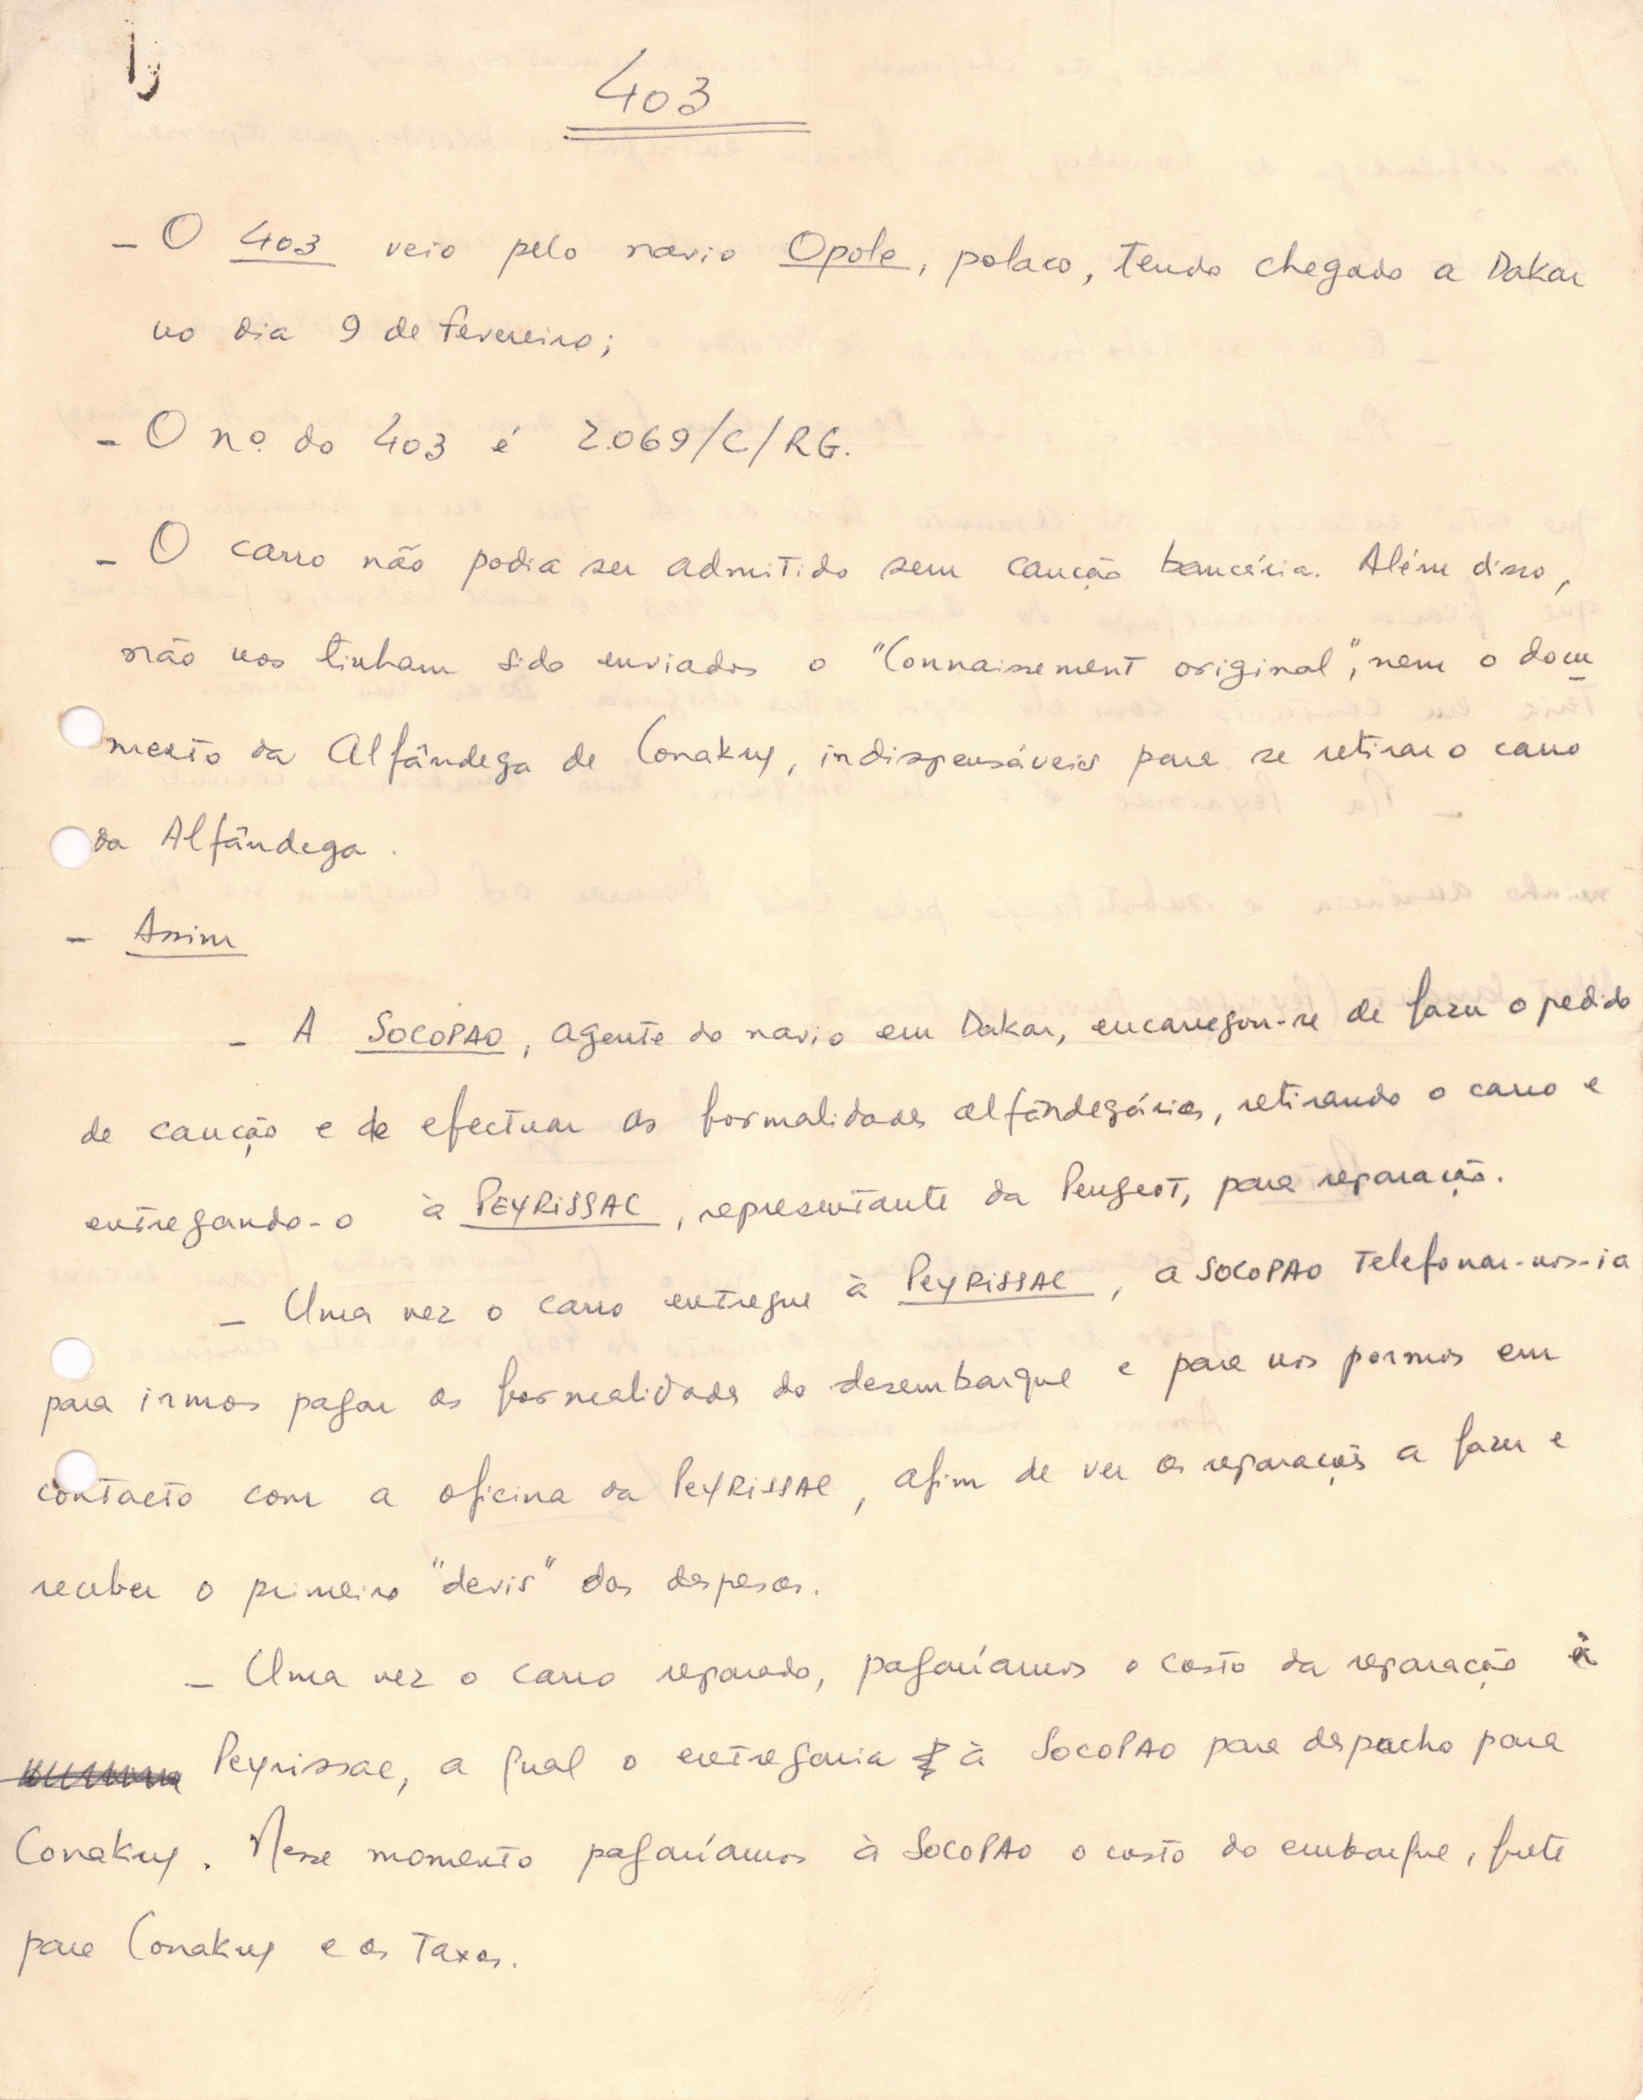 403
- O 403 veio pelo navio Opole, polaco, tendo chegado a Dakar
no dia 9 de fevereiro;
- O nº. do 403 é 2.069/C/RG.
- O carro não podia ser admitido sem caução bancária. Além disso,
não nos tinham sido enviados o "Connaissement original", nem o docu
mento da Alfândega de Conakry, indispensáveis para se retirar o carro
da Alfândega.
- Assim
- A SOCOPAO, agente do navio em Dakar, encarregou-se de fazer o pedido
de caução e de efectuar as formalidades alfandegárias, retirando o carro e
entregando-o à PEYRISSAC, representante da Peugeot, para reparação.
- Uma vez o carro entregue à PEYRISSAC, a SOCOPAO telefonar-nos-ia
para irmos pagar as formalidades do desembarque e para nos pormos em
contacto com a oficina da PEYRISSAC, afim de ver as reparações a fazer e
receber o primeiro "devis" das despesas.
- Uma vez o carro reparado, pagaríamos o custo da reparação à
Peyrissac, a qual o entregaria à SOCOPAO para despacho para
Conakry. Nesse momento pagaríamos à SOCOPAO o custo do embarque, frete
para Conakry e as taxas.